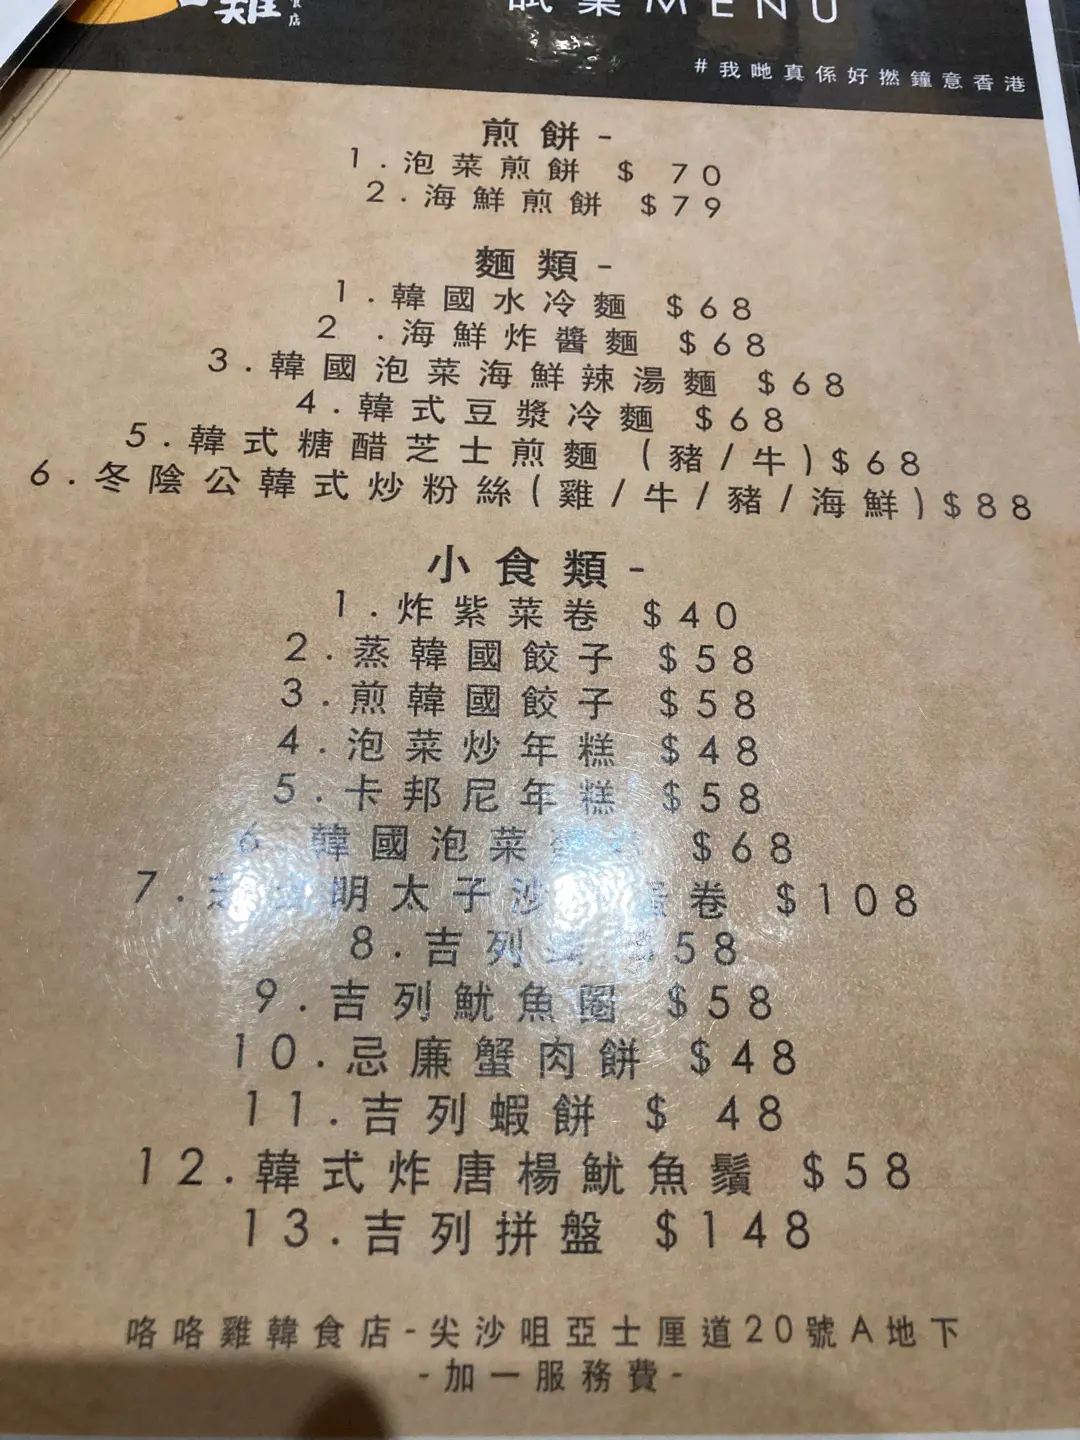 雞 食店
試業MENU
#我哋真係好撚鐘意香港
煎餅-
1.泡菜煎餅 $ 70
2.海鮮煎餅 $79
麵類-
1.韓國水冷麵 $68
2 .海鮮炸醬麵 $68
3.韓國泡菜海鮮辣湯麵 $68
4.韓式豆漿冷麵 $68
5.韓式糖醋芝士煎麵 (豬/牛)$68
6.冬陰公韓式炒粉絲(雞/牛/豬/海鮮)$88
小食類-
1.炸紫菜卷 $40
2.蒸韓國餃子 $58
3.煎韓國餃子 $58
4.泡菜炒年糕 $48
5.卡邦尼年糕 $58
6 韓國泡菜 $68
7. 明太子沙 蛋卷 $108
8.吉列 $58
9.吉列魷魚圈 $58
10.忌廉蟹肉餅 $48
11.吉列蝦餅 $ 48
12.韓式炸唐楊魷魚鬚 $58
13.吉列拼盤 $148
咯咯雞韓食店-尖沙咀亞士厘道20號A地下
-加一服務費-